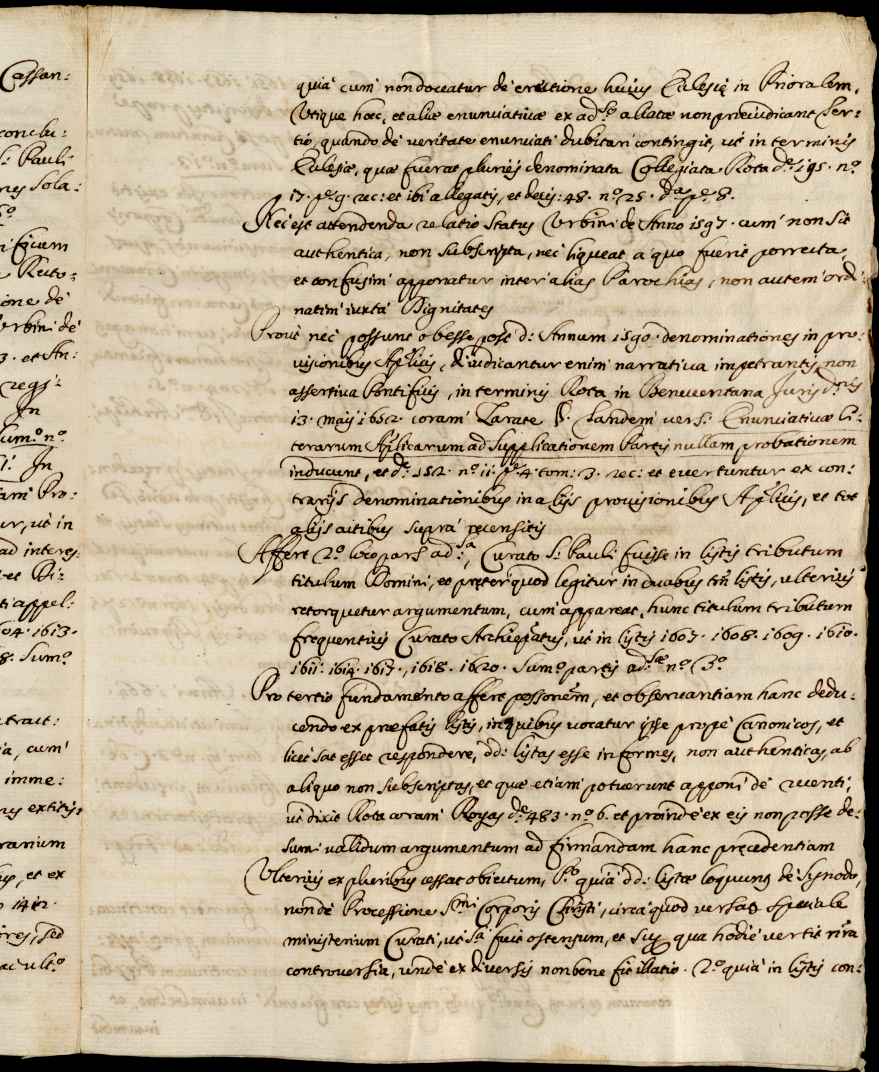 Cassan:
conclu:
S: Pauli
nis Sola:
ficium
Recto:
ione de
Urbini de
3. et An:
regs:
In
sum.º nº
In
iam Pro:
ur, ut in
ad interes:
et Di:
ti appel:
1613.
8. Sum.º
tract:
ia, cum
imme:
nis extitis:
ranium
et ex
sed
quia cum non doceatur de erectione huius Eclesię in Prioralem,
Utique hæc, et aliæ enunciativæ ex adsº allatæ non præiudicant ter:
tio, quando de veritate enunciati dubitari contingit, ut in terminis
Eclesiæ, quæ fuerat pluries denominata Collegiata Rota dec: 195. nº
17. pe 9. rec: et ibi allegatis, et decis: 48. nº 25. da pe 8.
Nec est attendenda relatio Status Urbini de Anno 1597. cum non sit
authentica, non subscripta, nec liqueat a quo fuerit porrecta,
et confusim apponatur inter alias Parochias, non autem ordi:
natim iuxta Dignitates
Prout nec possunt obesse post d: Annum 1590. denominationes in pro:
visionibus Aplicis, diudicantur enim narrativa impetrantis, non
assertiva Pontificis, in terminis Rota in Beneventana Jurisdnis
13. maij 1652. coram Zarate §. tandem vers: Enunciativæ li:
terarum Aplicarum ad supplicationem Partis nullam probationem
inducunt, et dec: 152. nº 11. pe 4. tom: 3. rec: et evertuntur ex con:
trarijs denominationibus in alijs provisionibus Aplicis, et tot
alijs actibus supra recensitis
Affert 2º loco pars adsa, Curato S: Pauli fuisse in listis tributum
titulum Domini, et preter quod legitur in duabus tm listis, ulterius
retorquetur argumentum, cum appareat, hunc titulum tributum
frequentius Curato Archipatus, ut in listis 1607. 1608. 1609. 1610.
1611. 1614. 1617., 1618. 1620. Sumº partis adsæ nº 3º
Pro tertio fundamento affert possonem, et observantiam hanc dedu:
cendo ex præfatis listis, in quibus vocatur ipse prope Canonicos, et
licet sat esset respondere, dd: listas esse informes, non authenticas, ab
aliquo non subscriptas, et quæ etiam potuerunt apponi de recenti,
ut dixit Rota coram Royas dec: 483. nº 6. et proinde ex eis non posse de:
sumi validum argumentum ad firmandam hanc precedentiam
Ulterius ex pluribus cessat obiectum, Pº quia dd: listæ loquuntur de Synodo,
non de Processione Smi Corporis Christi, circa quod versatur speciale
ministerium Curati, ut sa fuit ostensum, et super qua hodie vertit nra
controversia, unde ex diversis non bene fit illatio. 2º quia in listis con: